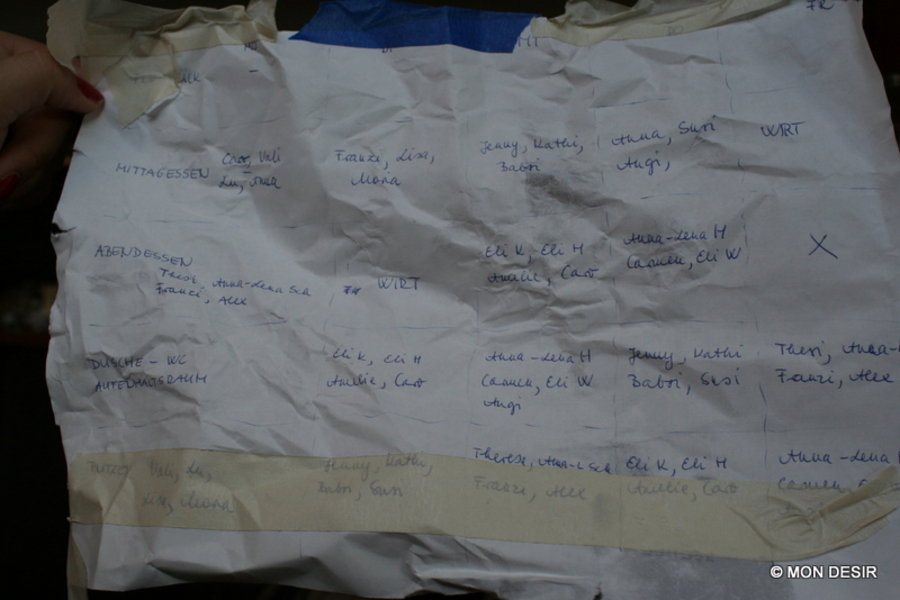 MO DI MI DO FR
MITTAGESSEN Caro, Vali Franzi, Lisa, Jenny, Kathi, Anna, Susi WIRT
Lu, Anna Mona Babsi Angi,
ABENDESSEN Eli K, Eli H Anna-Lena H X
Thesi, Anna-Lena Sch WIRT Amelie, Caro Carmen, Eli W
Franzi, Alex
DUSCHE - WC Eli K, Eli H Anna-Lena H Jenny, Kathi Thesi, Anna-
AUTENHALTSRAUM Amelie, Caro Carmen, Eli W Babsi, Susi Franzi, Alex
Angi
Vali, Lu, Jenny, Kathi, Therese, Anna-L Sch Eli K, Eli H Anna-Lena H
Lisa, Mona Babsi, Susi Franzi, Alex Amelie, Caro Carmen,
© MON DESIR